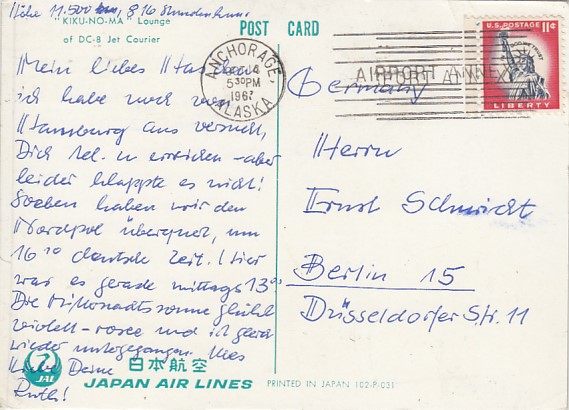 Höhe 11.500 km, 816 Stundenkm.
"KIKU-NO-MA" Lounge
of DC-8 Jet Courier
POST CARD
U.S. POSTAGE 11¢
LIBERTY
ANCHORAGE,
5 30 PM
1967
ALASKA
AIRPORT ANNEX
Germany
Mein liebes
ich habe noch von
Hamburg aus versucht,
Dich tel. zu erreichen - aber
leider klappte es nicht!
Soeben haben wir den
Nordpol überquert, um
16 10 deutsche Zeit. Hier
war es gerade mittags
Die Mitternachtssonne glüht
violett-rosee und ist gerade
wieder untergegangen. Alles
Liebe Deine
Ruth!
Herrn
Ernst Schmidt
Berlin 15
Düsseldorfer Str. 11
JAL
日本航空
JAPAN AIR LINES
PRINTED IN JAPAN 102-P-031